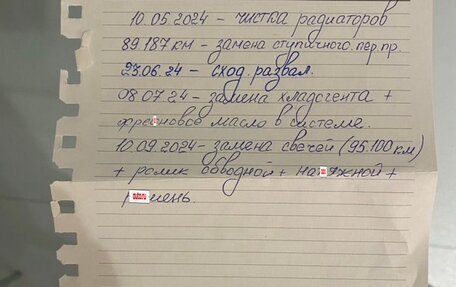 10.05.2024 - чистка радиаторов
89.187 км - замена ступичного пер пр.
23.06.24 - сход. развал.
08.07.24 - замена хладогента +
фреоновое масло в системе.
10.09.2024 - замена свечей (95.100 км)
+ ролик обводной + натяжной +
ремень.